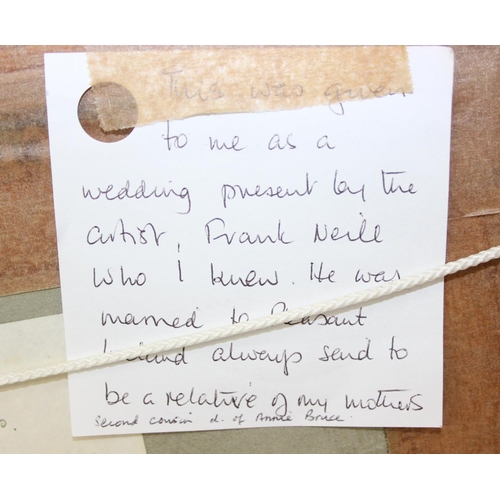 This was given
to me as a
wedding present by the
artist, Frank Neill
who I knew. He was
married to
always send to
be a relative of my mothers
second cousin d. of Annie Bruce.